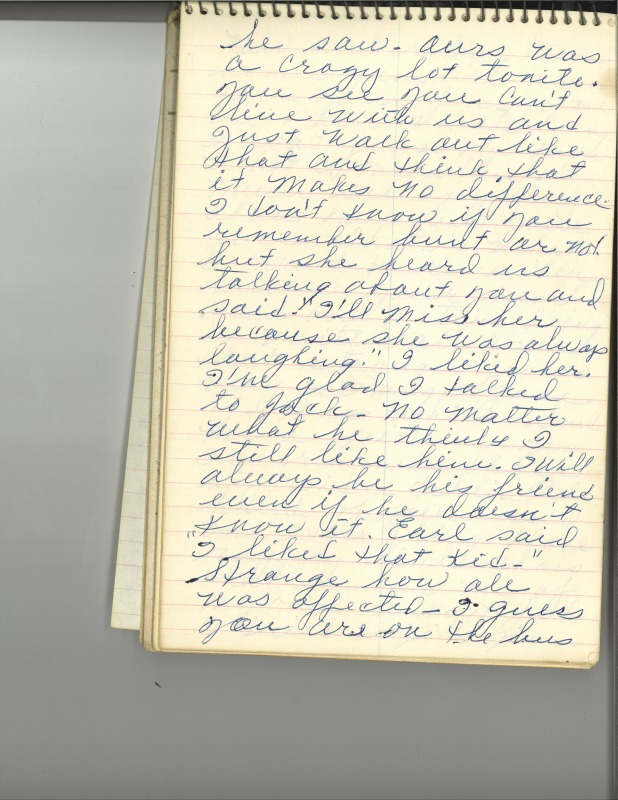 he saw - ours was
a crazy lot tonite.
You see you can't
live with us and
just walk out like
that and think that
it makes no difference.
I don't know if you
remember or not.
but she heard us
talking about you and
said - "I'll miss her
because she was always
laughing." I liked her.
I'm glad I talked
to Jack - No matter
what he thinks I
still like him. I will
always be his friend
even if he doesn't
know it. Earl said
"I liked that kid -"
Strange how all
was affected - I guess
you are on the bus